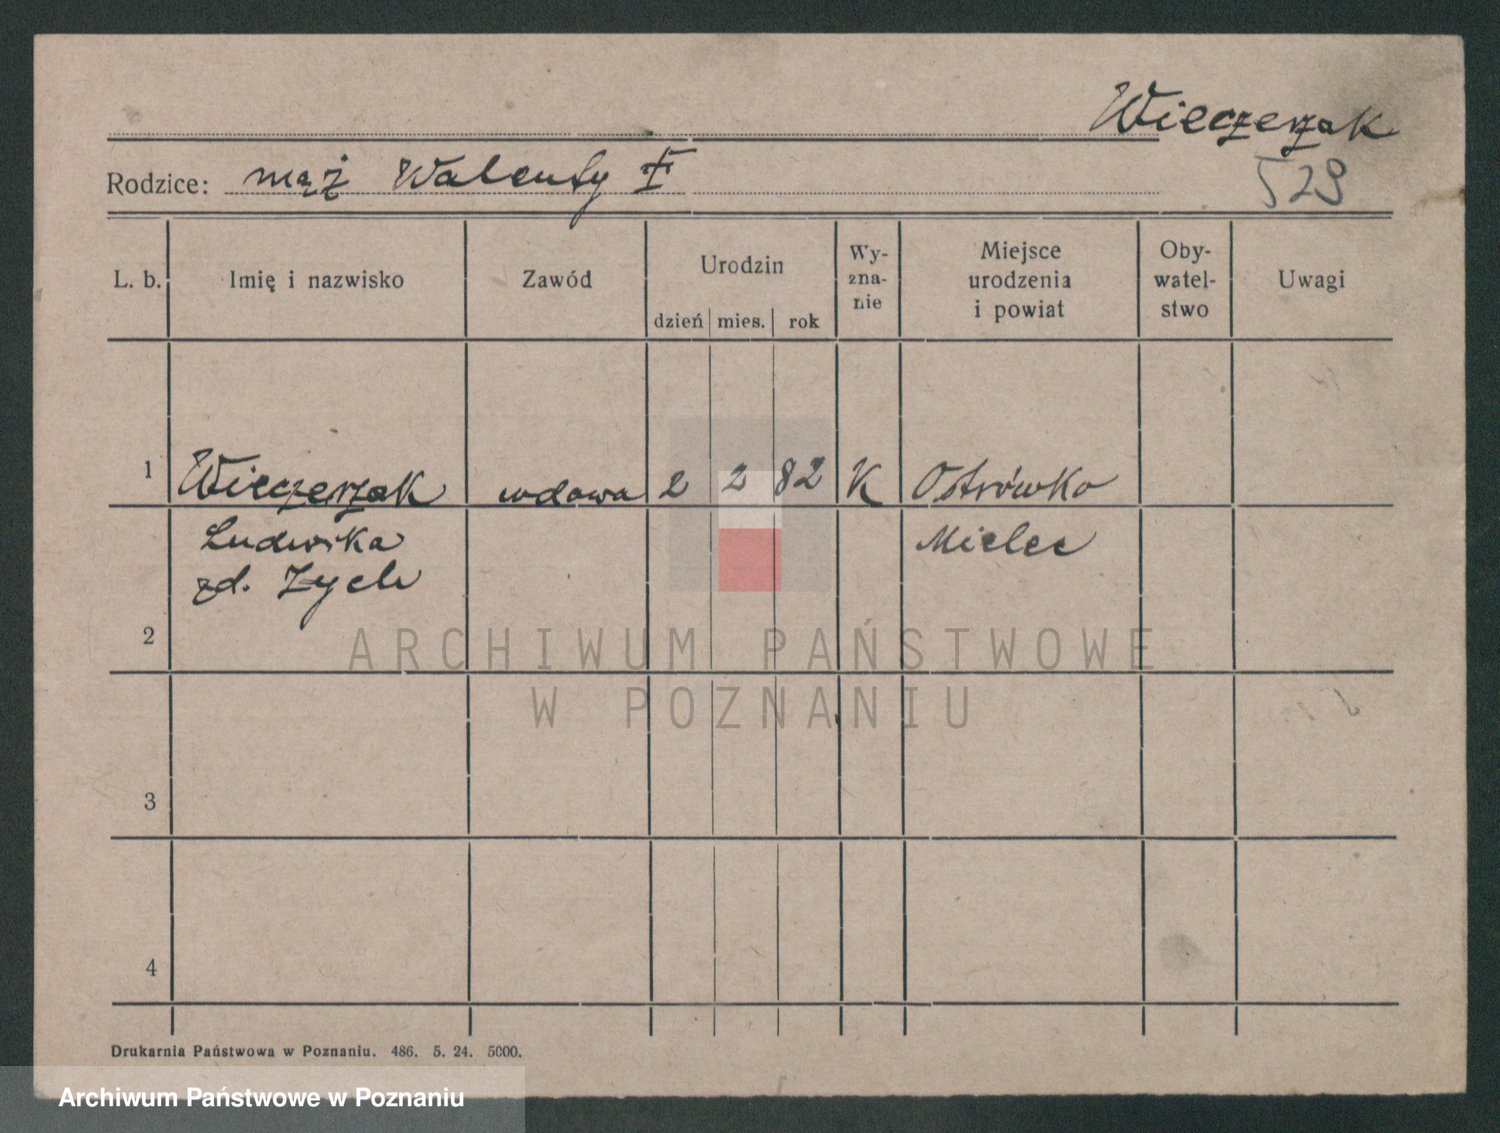 Wieczerzak
Rodzice: mąż Walenty †
529
L. b. Imię i nazwisko Zawód Urodzin dzień mies. rok Wy-zna-nie Miejsce urodzenia i powiat Oby-watel-stwo Uwagi
1 Wieczerzak wdowa 2 2 82 K Ostrówko
Ludwika Mielec
zd. Zych
2
ARCHIWUM PAŃSTWOWE
W POZNANIU
3
4
Drukarnia Państwowa w Poznaniu. 486. 5. 24. 5000.
Archiwum Państwowe w Poznaniu